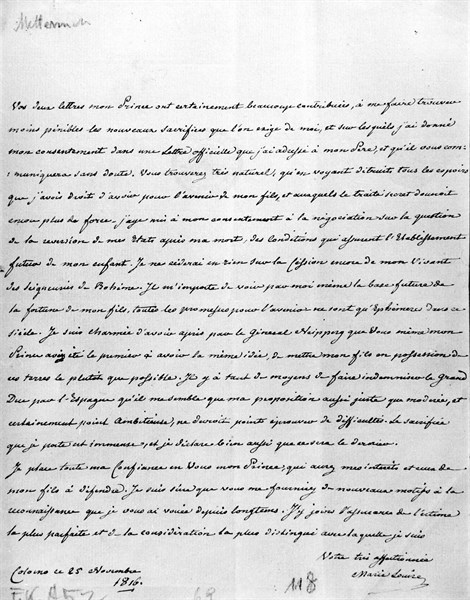 Metternich
Vos deux lettres mon Prince ont certainement beaucoup contribuées, à me faire trouver
moins pénibles les nouveaux sacrifices que l'on exige de moi, et sur lesquels j'ai donné
mon consentement dans une Lettre officielle que j'ai adressé à mon Père, et qu'il vous com-
muniquera sans doute. Vous trouverez très naturel, qu'en voyant détruits tous les espoirs
que j'avois droit d'avoir pour l'avenir de mon fils, et auxquels le traité secret donnoit
encor plus de force, j'aye mis à mon consentement à la négociation sur la question
de la reversion de mes Etats après ma mort, des Conditions qui assurent l'Etablissement
futur de mon enfant. Je ne céderai en rien sur la Cession encore de mon Vivant
des Seigneuries de Bohème. Il m'importe de voir par moi même la base future de
la fortune de mon fils, toutes les promesses pour l'avenir ne sont qu'Ephémères dans ce
siècle. Je suis Charmée d'avoir appris par le Général Neipperg que Vous même mon
Prince aviez été le premier à avoir la même idée, de mettre mon fils en possession de
ces terres le plutôt que possible. Il y a tant de moyens de faire indemniser le Grand
Duc par l'Espagne qu'il me semble que ma proposition aussi juste que modérée, et
certainement point Ambitieuse, ne devroit point éprouver de difficultés. Le sacrifice
que je porte est immense, et je déclare bien aussi que ce sera le dernier.
Je place toute ma Confiance en Vous mon Prince, qui avez mes interets et ceux de
mon fils à défendre. Je suis sûre que vous me fournirez de nouveaux motifs à la
reconnaissance que je vous ai vouée depuis longtems. J'y joins l'assurance de l'estime
la plus parfaite et de la considération la plus distinguée avec laquelle je suis
Votre très affectionnée
Marie Louise
Colorno ce 25 Novembre
1816.
118